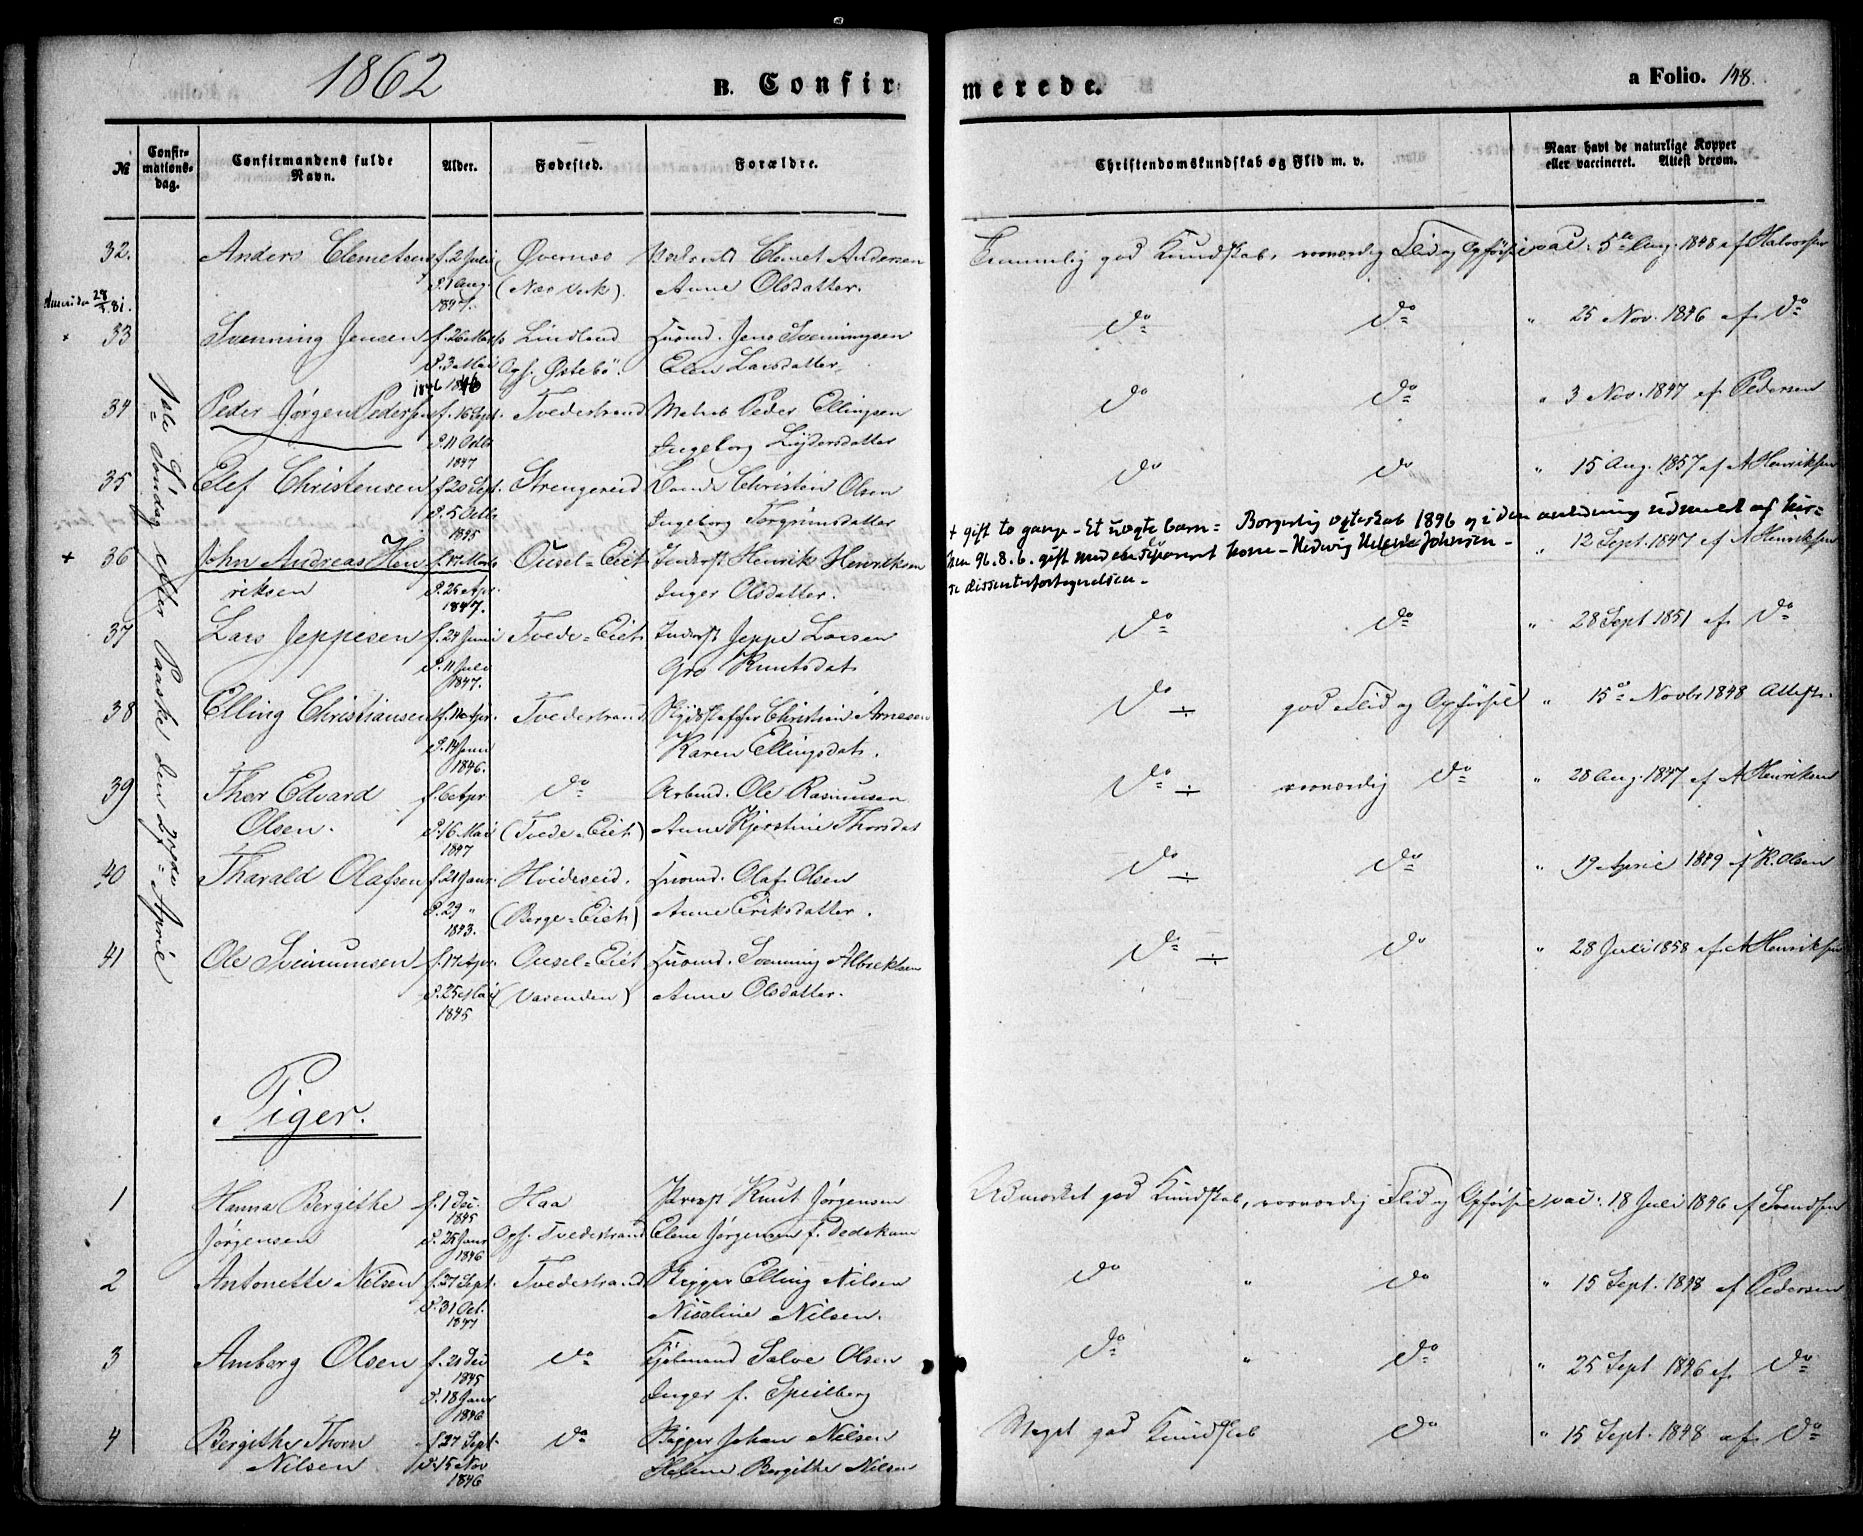 1862
B. Confirmerede.
a Folio. 148.
№
Confirmationsdag.
Confirmandens fulde Navn.
Alder.
Fødested.
Forældre.
Christendomskundskab og Flid m. v.
Naar havt de naturlige Kopper eller vaccineret. Attest derom.
Søndag efter Paaske den 27de April
32. Anders Clemetsen f. 2 Juli Øvernæs Clemet Andersen Temmelig god Kundskab, roesværdig Flid og Opførsel vac: 5te Aug. 1848 af Halvorsen
d. 1 Aug. (Næs Værk). Anne Olsdatter.
1847.
28/3 81.
× 33 Svenning Jensen f. 26 Marts Lindland Huusmd. Jens Svenningsen do do " 25 Nov. 1846 af do
d. 3 Mai Oph. Østebö. Elen Larsdatter,
1846 1846
34 Peder Jørgen Pedersen f. 16 Sept. Tvedestrand Matros Peder Ellingsen do do " 3 Nov. 1847 af Pedersen
d. 11 Octb Ingeborg
1847
35 Elef Christensen f. 20 Sept. Strengereid Christen Olsen do do " 15 Aug. 1857 af A Henriksen
d. 5 Octb Ingeborg Torgrimsdatter
1845
+ gift to gange - Et uægte barn = Borgerlig ægteskab 1896 og i den anledning udmeldt af kirken 96. 8. 6. gift med en separert kone - Hedwig Johnsen -
se dissenterfortegnelsen -
+ 36 John Andreas Hen- f. 17 Marts Ousel-Eiet Inderst Henrik Henriksen " 12 Sept. 1847 af A Henriksen
riksen d. 25 Apr. Inger Olsdatter.
1847.
37 Lars Jeppesen f. 24 Juni Tvede-Eiet Inderst Jeppe Larsen do do " 28 Sept 1851 af do
d. 11 Juli Gro Knutsdat
1847.
38 Elling Christiansen f. 11 Apr. Tvedestrand Skydsskaffer Christian Arnesen do ÷ god Flid og Opførsel " 15de Novbr 1848 Attest.
d. 14 Juni Karen Ellingsdat.
1846.
39 Thor Edvard f. 6 Apr do Arbmd. Ole Rasmussen do ÷ roesværdig do " 28 Aug. 1847 af A Henriksen
Olsen. d. 16 Mai (Tvede-Eiet) Anne Kjerstine Thorsdat
1847
40 Tharald Olafsen f. 21 Janr. Hvideseid. Huusmd. Olaf Olsen do ÷ do " 19 April 1849 af K. Olsen
d. 29 " (Berge-Eiet) Anne Eriksdatter.
1843.
41 Ole f. 17 Apr. Ousel-Eiet Huusmd. Svenning Albrektsen do ÷ do " 28 Juli 1858 af A Henriksen
d. 25 Mai (Varenden) Anne Olsdatter.
1845
Piger.
1 Hanna Bergithe f. 1 Dec. Haa Knut Jørgensen Udmærket god Kundskab, roesværdig Flid og Opførsel vac: 18 Juli 1846 af Svendsen
1845
Jørgensen d. 25 Janr Oph. Tvedestrand Elene Jørgensen f. Dedekam
1846
2 Antonette Nilsen f. 27 Sept. Tvedestrand Skipper Elling Nilsen do " do " 15 Sept. 1848 af Pedersen
d. 31 Oct. Nicoline Nilsen.
1847
3 Amborg Olsen f. 21 Dec do Salve Olsen do " do " 25 Sept 1846 af do
1845
d. 18 Janr Inger f. Speilberg
1846
4 Bergithe Thorn f. 27 Sept do Skipper Johan Nilsen Meget god Kundskab do " 15 Sept. 1848 af do
Nilsen d. 15 Nov Helene Bergithe Nilsen
1846